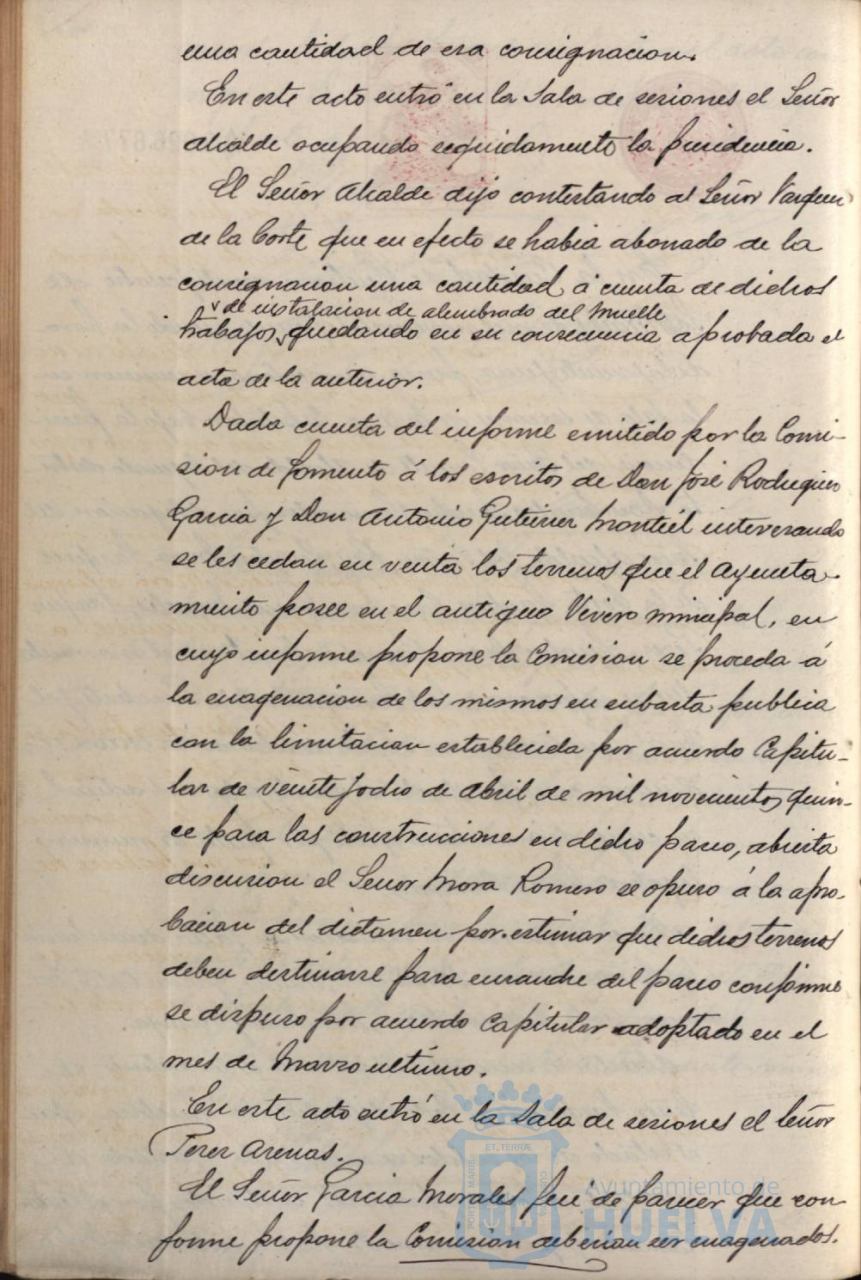 una cantidad de esa consignacion.
En este acto entró en la Sala de sesiones el Señor
alcalde ocupando seguidamente la presidencia.
El Señor Alcalde dijo contestando al Señor Vazquez
de la Corte que en efecto se habia abonado de la
consignacion una cantidad á cuenta de dichos
de instalacion de alumbrado del Muelle
trabajos, quedando en su consecuencia aprobada el
acta de la anterior.
Dada cuenta del informe emitido por la Comi-
sion de Fomento á los escritos de Don José Rodriguez
Garcia y Don Antonio Gutierrez Montiel interesando
se les cedan en venta los terrenos que el Ayunta-
miento posee en el antiguo Vivero municipal, en
cuyo informe propone la Comision se proceda á
la enagenacion de los mismos en subasta publica
con la limitacion establecida por acuerdo Capitu-
lar de veinte y ocho de Abril de mil novecientos quin-
ce para las construcciones en dicho paseo, abierta
discusion el Señor Mora Romero se opuso á la apro-
bacion del dictamen por estimar que dichos terrenos
deben destinarse para ensanche del paseo conforme
se dispuso por acuerdo Capitular adoptado en el
mes de Marzo ultimo.
En este acto entró en la Sala de sesiones el Señor
Perez Arenas.
El Señor Garcia Morales fué de parecer que con-
forme propone la Comision deberian ser enagenados.
PORTUS MARIS ET TERRAE CUSTODIO
Ayuntamiento de
HUELVA